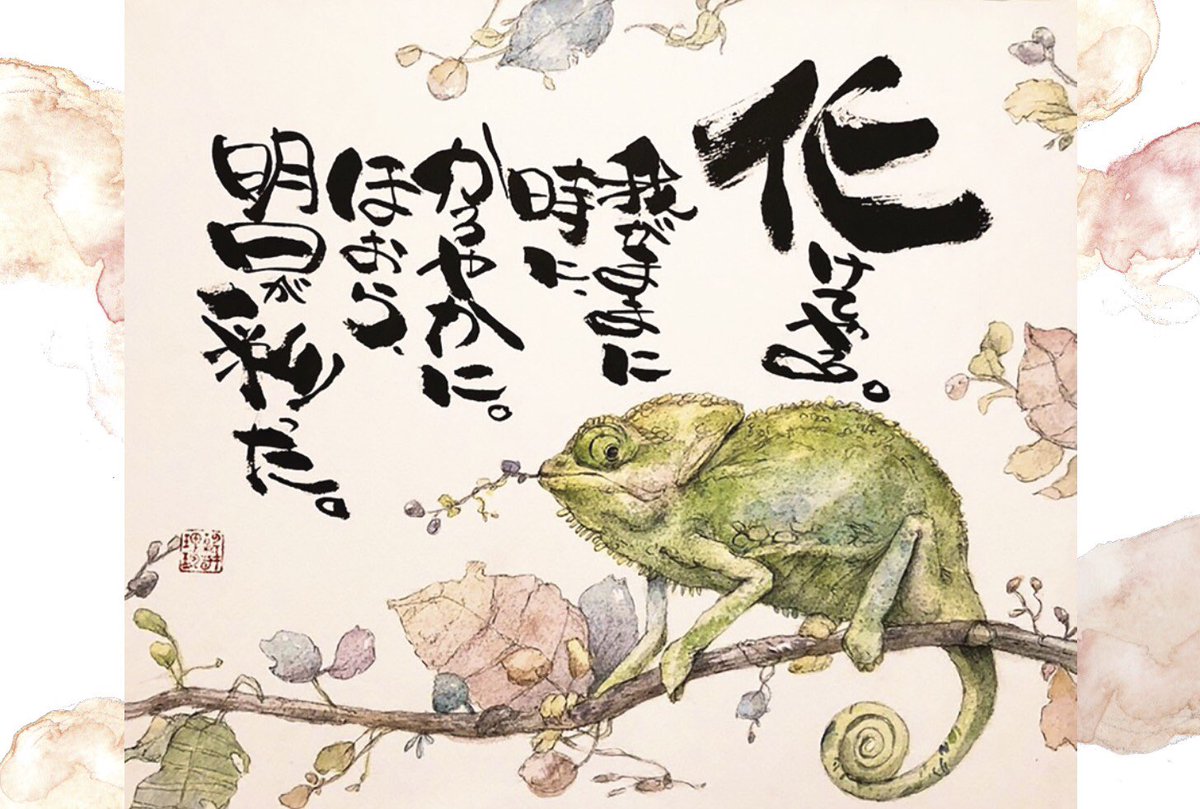 化けてやる。
我がままに
時に、
かろやかに。
ほおら、
明日が彩った。